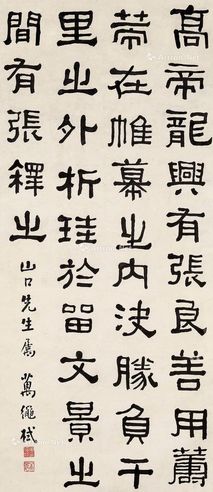 高帝龍興有張良善用籌
策在帷幕之內決勝負千
里之外析珪於留文景之
間有張釋之
山口先生屬 萬繩栻